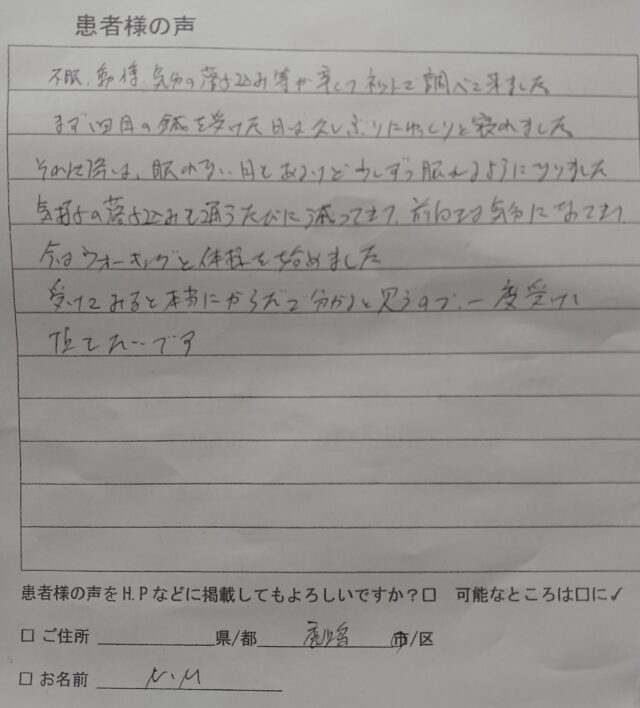 患者様の声
不眠、動悸、気分の落ち込み等が辛くて ネットで調べて来ました
まず1回目の鍼を受けた日は久しぶりにゆっくりと寝れました
その後は、眠れない日もあるけど少しずつ眠れるようになりました
気持の落ち込みも通うたびに減ってきて、前向きな気分になってきて
今はウォーキングと体操を始めました
受けてみると本当にからだで分かると思うので、一度受けて
頂きたいです
患者様の声をH.Pなどに掲載してもよろしいですか？□ 可能なところは□に✓
□ ご住所 県/都 市/区
□ お名前 N.M